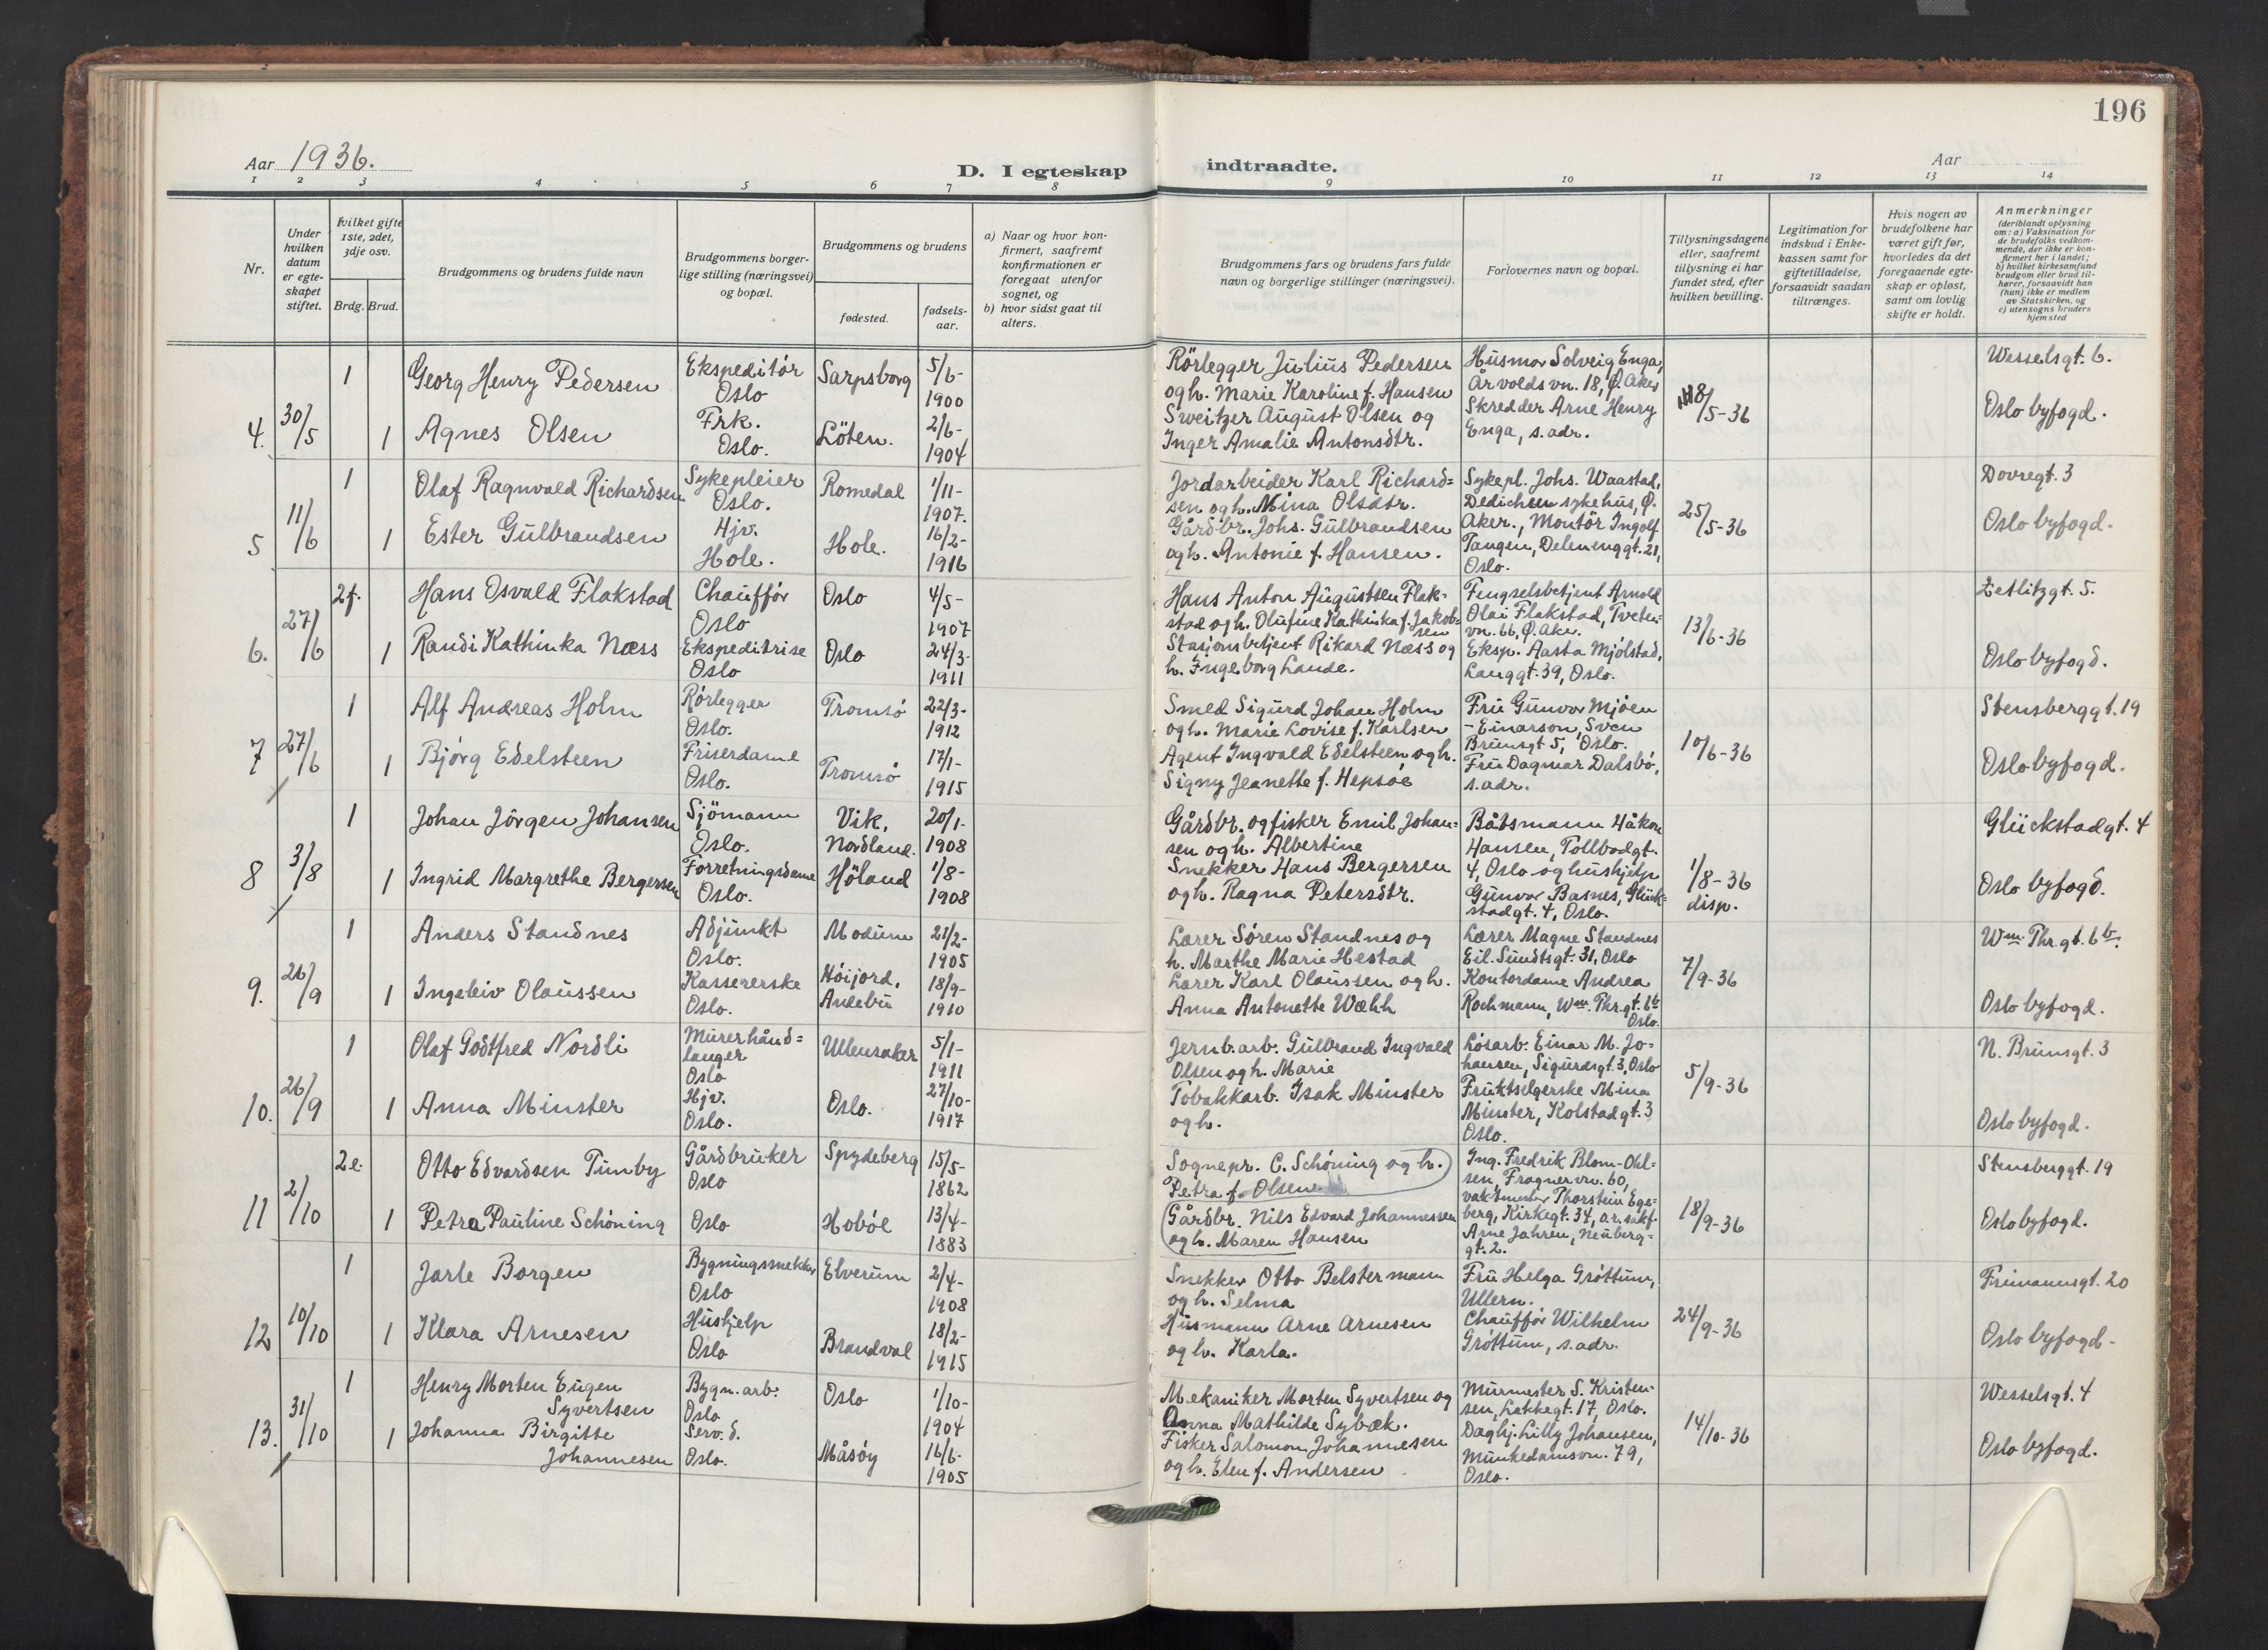 196
Aar 1936.
D. I egteskap
indtraadte.
Aar
1 2 3 4 5 6 7 8 9 10 11 12 13 14
Nr.
Under
hvilken
datum
er egte-
skapet
stiftet.
Hvilket gifte
1ste, 2det,
3dje osv.
Brdg. Brud.
Brudgommens og brudens fulde navn
Brudgommens borger-
lige stilling (næringsvei)
og bopæl.
Brudgommens og brudens
fødested.
fødsels-
aar.
a) Naar og hvor kon-
firmert, saafremt
konfirmationen er
foregaat utenfor
sognet, og
b) hvor sidst gaat til
alters.
Brudgommens fars og brudens fars fulde
navn og borgerlige stillinger (næringsvei).
Forlovernes navn og bopæl.
Tillysningsdagene
eller, saafremt
tillysning ei har
fundet sted, efter
hvilken bevilling.
Legitimation for
indskud i Enke-
kassen samt for
giftetilladelse,
forsaavidt saadan
tiltrænges.
Hvis nogen av
brudefolkene har
været gift før,
hvorledes da det
foregaaende egte-
skap er opløst,
samt om lovlig
skifte er holdt.
Anmerkninger
(deriblandt oplysning
om: a) Vaksination for
de brudefolks vedkom-
mende, der ikke er kon-
firmert her i landet;
b) hvilket kirkesamfund
brudgom eller brud til-
hører, forsaavidt han
(hun) ikke er medlem
av Statskirken, og
c) utensogns bruders
hjemsted
4. 30/5
1
Georg Henry Pedersen
Ekspeditör
Oslo
Sarpsborg
5/6-
1900
1
Agnes Olsen
Frk.
Oslo.
Löten.
2/6-
1904
Rörlegger Julius Pedersen
og h. Marie Karoline f. Hansen
Sveitzer August Olsen og
Inger Amalie Antonsdtr.
Husmor Solveig Enga,
Årvolds vn. 18, Ø. Aker
Skredder Arne Henry
Enga, s. adr.
18/5-36
Wesselsgt. 6.
Oslo byfogd.
5 11/6
1
Olaf Ragnvald Richardsen
Sykepleier
Oslo.
Romedal
1/11-
1907.
1
Ester Gulbrandsen
Hjv.
Hole.
Hole.
16/2-
1916
Jordarbeider Karl Richard=
sen og h. Nina Olsdtr.
Gårdbr. Johs. Gulbrandsen
og h. Antonie f. Hansen.
Sykepl. Johs. Waastad,
Dedichen sykehus, Ø.
Aker., Montör Ingolf
Tangen, Delenenggt. 21,
Oslo.
25/5-36
Dovregt. 3
Oslo byfogd.
6. 27/6
2f.
Hans Osvald Flakstad
Chauffør
Oslo
Oslo
4/5-
1907
1
Randi Kathinka Næss
Ekspeditrise
Oslo
Oslo
24/3-
1911
Hans Anton Augustsen Flak-
stad og h. Olufine Kathinka f. Jakob=
sen
Stasjonsbetjent Rikard Næss og
h. Ingeborg Lande.
Fengselsbetjent Arnold
Olai Flakstad, Tveten-
vn. 66, Ø. Aker.
Eksp. Aasta Mjølstad,
Langgt. 39, Oslo.
13/6-36
Zetlitzgt. 5.
Oslo byfogd.
7 27/6
1
Alf Andreas Holm
Rörlegger
Oslo.
Tromsø
22/3-
1912
1
Bjørg Edelsteen
Friserdame
Oslo.
Tromsø
17/1-
1915
Smed Sigurd Johan Holm
og h. Marie Lovise f. Karlsen
Agent Ingvald Edelsteen og h.
Signy Jeanette f. Hepsøe
Fru Gunvor Mjøen
- Einarson, Sven
Brunsgt 5, Oslo.
Fru Dagmar Dalsbø,
s. adr.
10/6-36
Stensberggt. 19
Oslo byfogd.
8 3/8
1
Johan Jörgen Johansen
Sjömann
Oslo.
Vik,
Nordland.
20/1-
1908
1
Ingrid Margrethe Bergersen
Forretningsdame
Oslo.
Höland
1/8-
1908
Gårdbr. og fisker Emil Johan=
sen og h. Albertine
Snekker Hans Bergersen
og h. Ragna Petersdtr.
Båtsmann Håkon
Hansen, Tollbodgt.
4, Oslo og hushjelp
Gunvor Basnes, Glück-
stadgt. 4, Oslo.
1/8-36
disp.
Glückstadgt. 4
Oslo byfogd.
9. 26/9
1
Anders Standnes
Adjunkt
Oslo.
Modum
21/2-
1905
1
Ingeleiv Olaussen
Kassererske
Oslo.
Höijord,
Andebu
18/9-
1910
Lærer Søren Standnes og
h. Marthe Marie Hestad
Lærer Karl Olaussen og h.
Anna Antonette Wæhh
Lærer Magne Standnes
Eil. Sundtsgt. 31, Oslo
Kontordame Andrea
Rochmann, Wm. Thr. gt. 6b
Oslo.
7/9-36
Wm. Thr. gt. 6b.
Oslo byfogd.
10. 26/9
1
Olaf Godtfred Nordli
Murerhånd=
langer
Oslo
Ullensaker
5/1-
1911
1
Anna Minster
Hjv.
Oslo.
Oslo.
27/10-
1917
Jernb. arb. Gulbrand Ingvald
Olsen og h. Marie
Tobakkarb. Isak Minster
og h.
Løsarb. Einar M. Jo-
hansen, Sigurdsgt. 3, Oslo
Fruktselgerske Mina
Minster, Kolstadgt. 3
Oslo.
5/9-36
N. Brunsgt. 3
Oslo byfogd.
11 2/10
2e.
Otto Edvardsen Timby
Gårdbruker
Oslo
Spydeberg
15/5-
1862
1
Petra Pauline Schöning
Oslo
Hobøl
13/4-
1883
Sognepr. C. Schöning og h.
Petra f. Olsen
Gårdbr. Nils Edvard Johannessen
og h. Maren Hansen
Ing. Fredrik Blom-Ohl=
sen, Frognervn. 60,
vaktmester Thorstein Ege=
berg, Kirkegt. 34, o.r. sakf.
Arne Jahren, Neuberg-
gt. 2.
18/9-36
Stensberggt. 19
Oslo byfogd.
12 10/10
1
Jarle Borgen
Bygningssnekker
Oslo
Elverum
2/4-
1908
1
Klara Arnesen
Hushjelp
Oslo
Brandval
18/2-
1915
Snekker Otto Belstermann
og h. Selma
Husmann Arne Arnesen
og h. Karla.
Fru Helga Gröttum,
Ullern.
Chauffør Wilhelm
Gröttum, s. adr.
24/9-36
Frimannsgt. 20
Oslo byfogd-
13. 31/10
1
Henry Morten Eugen
Syvertsen
Bygn. arb.
Oslo
Oslo
1/10-
1904
1
Johanna Birgitte
Johannesen
Serv. d.
Oslo.
Måsøy
16/6-
1905
Mekaniker Morten Syvertsen og
Anna Mathilde Sybæk.
Fisker Salomon Johannesen
og h. Elen f. Andersen
Murmester S. Kristen-
sen, Lakkegt. 17, Oslo.
Daghj. Lilly Johansen,
Munkedamsvn. 79,
Oslo.
14/10-36
Wesselsgt. 4
Oslo byfogd.